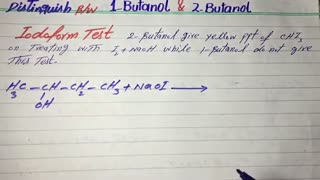 Distinguish B/w 1-Butanol & 2-Butanol
Iodoform Test 2-Butanol give yellow ppt of CHI3
on Treating with I2+NaOH while 1-Butanol do not give
This Test.
H3C-CH-CH2-CH3+NaOI →
OH